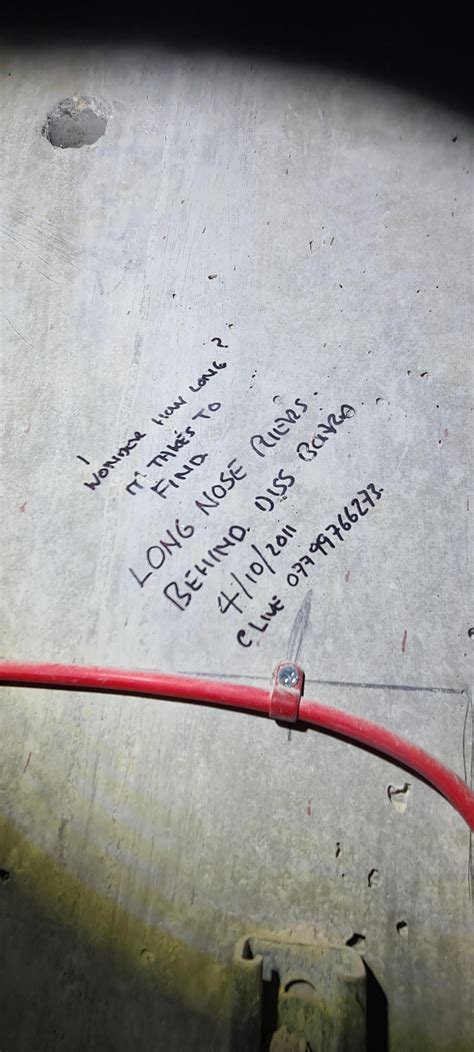 I
WONDER HOW LONG?
IT TAKES TO
FIND.
LONG NOSE PLIERS.
BEHIND. DISS BOARD
4/10/2011
CLIVE 07799766273.